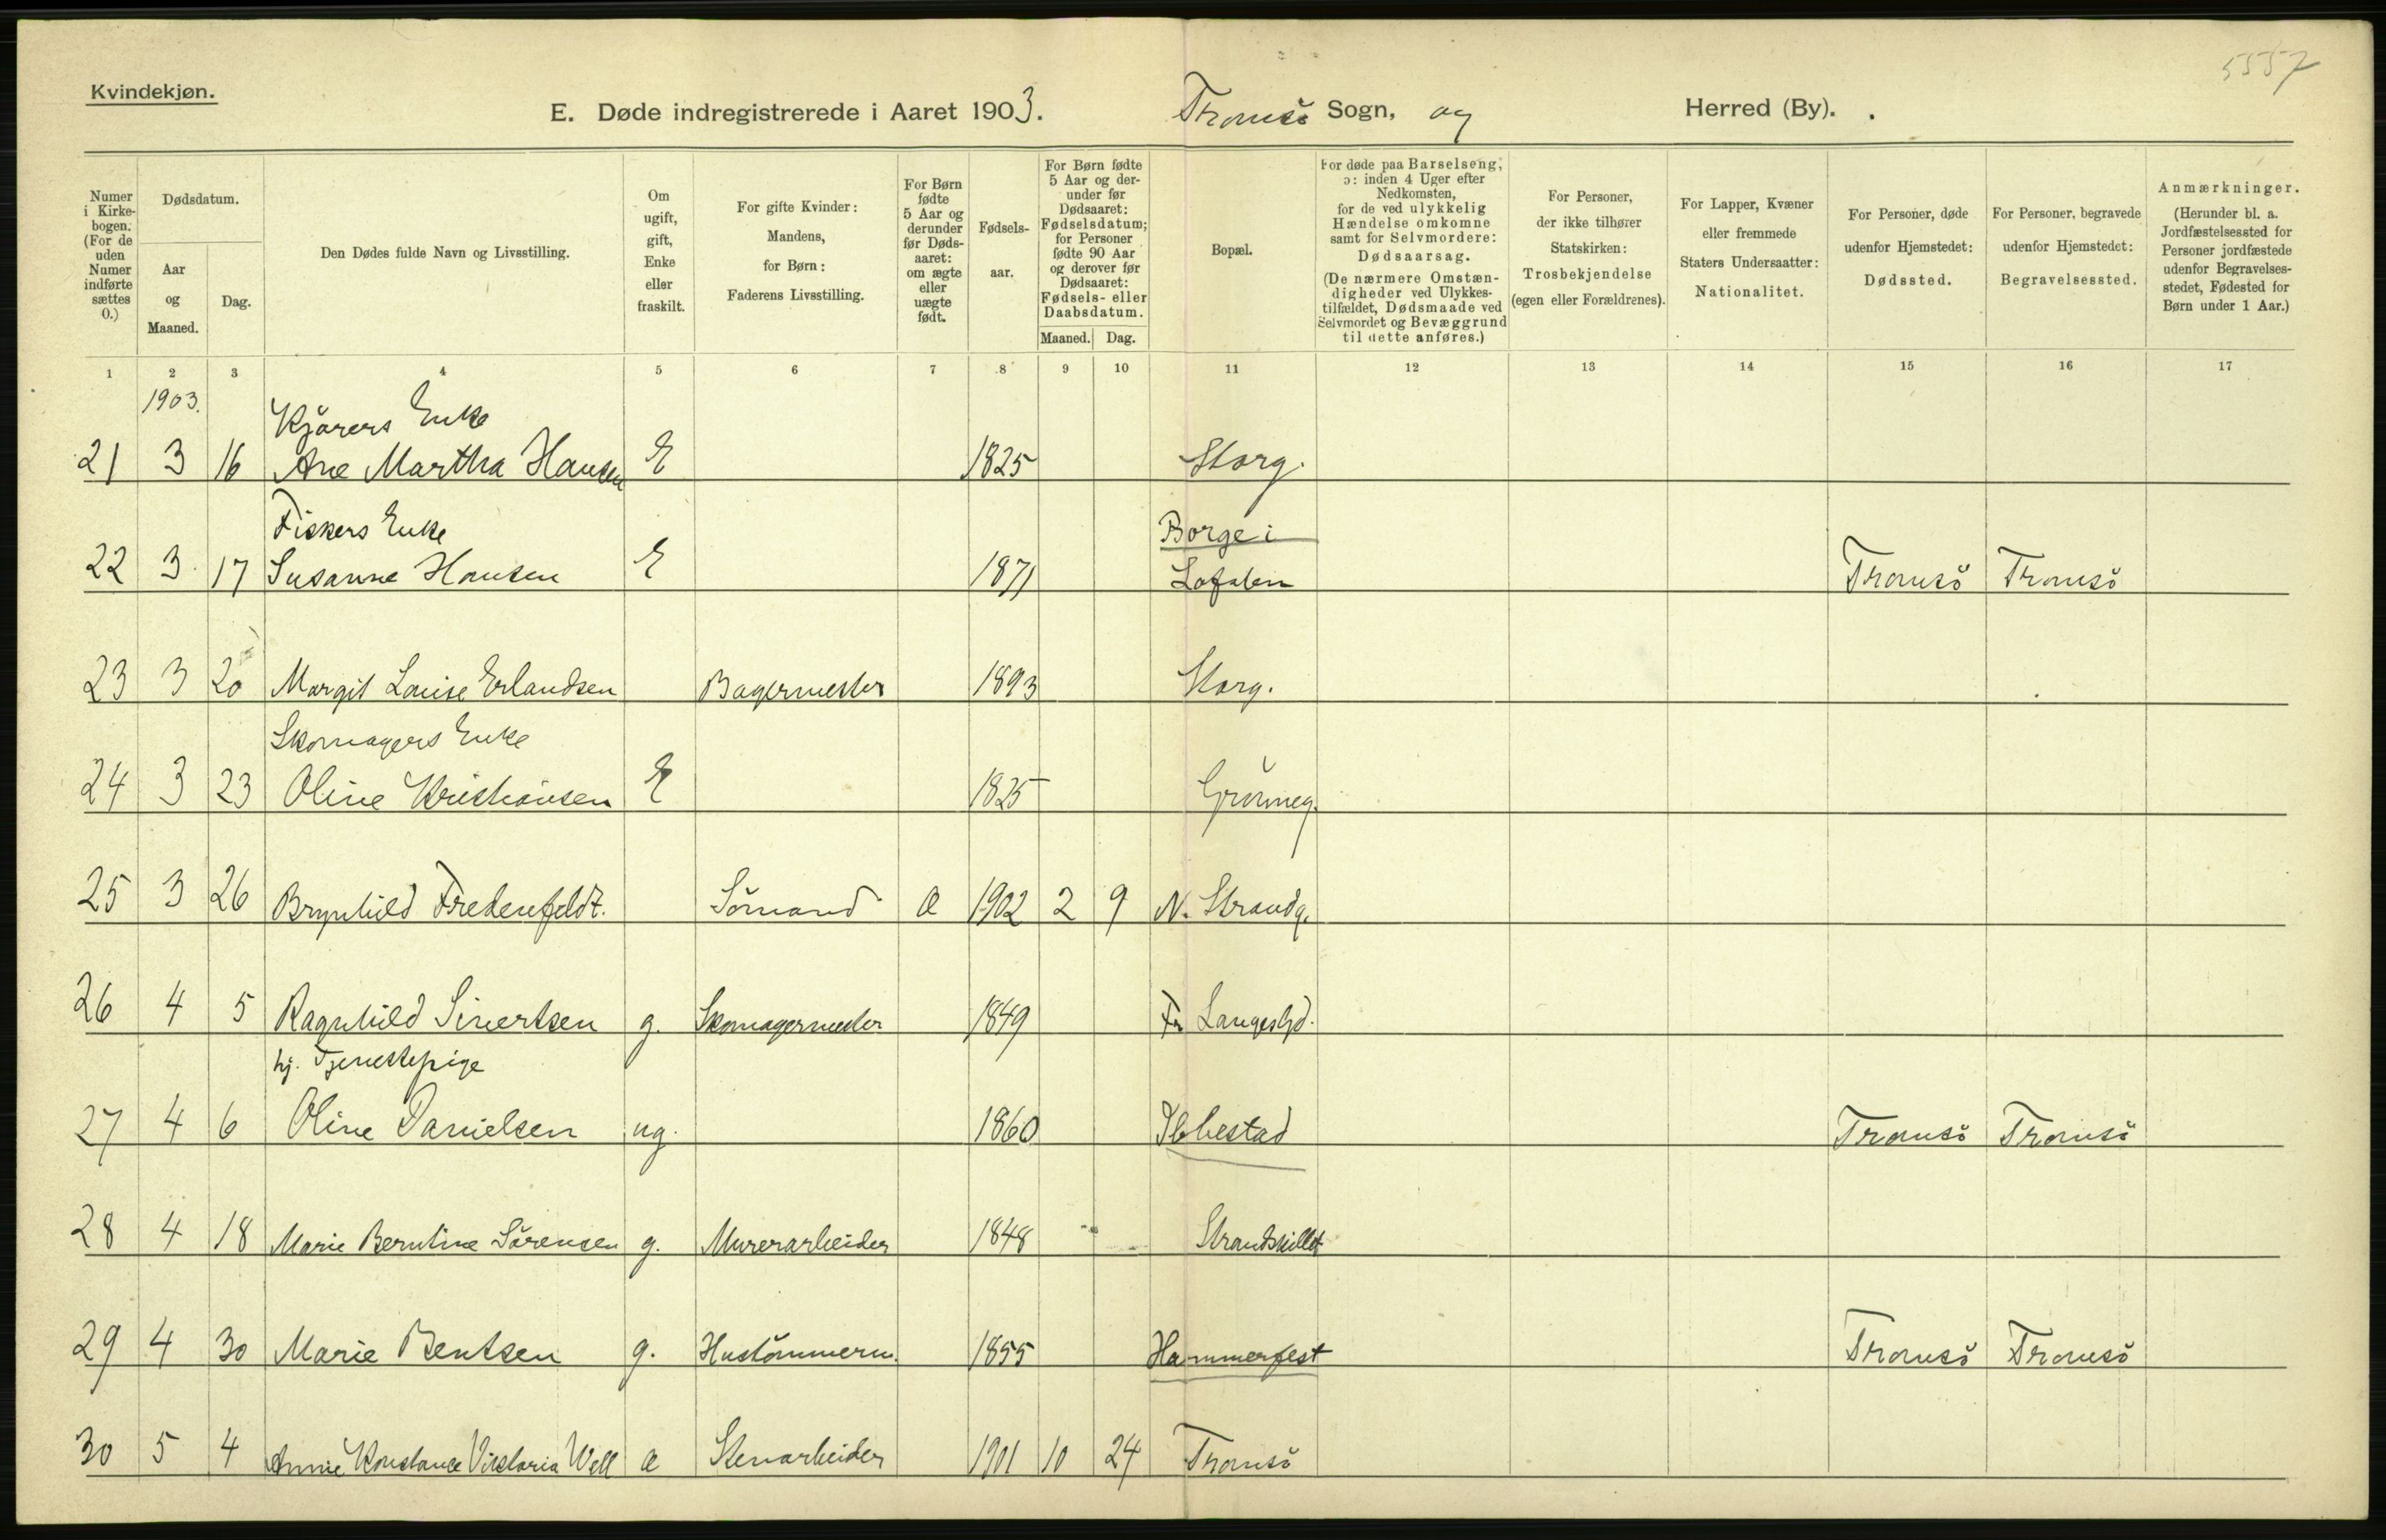 5557
Kvindekjøn.
E. Døde indregistrerede i Aaret 1903. Tromsö Sogn, og Herred (By).
Numer i Kirkebogen. (For de uden Numer indførte sættes 0.)
Dødsdatum.
Aar og Maaned.
Dag.
Den Dødes fulde Navn og Livsstilling.
Om ugift, gift, Enke eller fraskilt.
For gifte Kvinder: Mandens, for Børn: Faderens Livsstilling.
For Børn fødte 5 Aar og derunder før Dødsaaret: om ægte eller uægte født.
Fødselsaar.
For Børn fødte 5 Aar og derunder før Dødsaaret: Fødselsdatum; for Personer fødte 90 Aar og derover før Dødsaaret: Fødsels- eller Daabsdatum.
Maaned. Dag.
Bopæl.
For døde paa Barselseng, ɔ: inden 4 Uger efter Nedkomsten, for de ved ulykkelig Hændelse omkomne samt for Selvmordere: Dødsaarsag.
(De nærmere Omstændigheder ved Ulykkestilfældet, Dødsmaade ved Selvmordet og Bevæggrund til dette anføres.)
For Personer, der ikke tilhører Statskirken: Trosbekjendelse (egen eller Forældrenes).
For Lapper, Kvæner eller fremmede Staters Undersaatter: Nationalitet.
For Personer, døde udenfor Hjemstedet: Dødssted.
For Personer, begravede udenfor Hjemstedet: Begravelsessted.
Anmærkninger. (Herunder bl. a. Jordfæstelsessted for Personer jordfæstede udenfor Begravelsesstedet, Fødested for Børn under 1 Aar.)
1 2 3 4 5 6 7 8 9 10 11 12 13 14 15 16 17
1903.
Kjörers Enke
21 3 16 Ane Martha Hansen E 1825 Storg.
Fiskers Enke Borge i
22 3 17 Susanne Hansen E 1871 Lofoten Tromsö Tromsö
23 3 20 Margit Louise Erlandsen Bagermester 1893 Storg.
Skomagers Enke
24 3 23 Oline Kristiansen E 1825 Grönneg.
25 3 26 Brynhild Fredenfeldt. Sömand a 1902 2 9 N. Strandg.
26 4 5 Ragnhild Sivertsen g. Skomagermester 1849 Fr Langesgd.
hj. Tjenestepige
27 4 6 Oline Danielsen ug. 1860 Ibbestad Tromsö Tromsö
28 4 18 Marie Berntine Sörensen g. Murerarbeider 1848 Strandskillet
29 4 30 Marie Bentsen g. Hustömmerm. 1855 Hammerfest Tromsö Tromsö
30 5 4 Annie Konstance Viktoria Well a Stenarbeider 1901 10 24 Tromsö